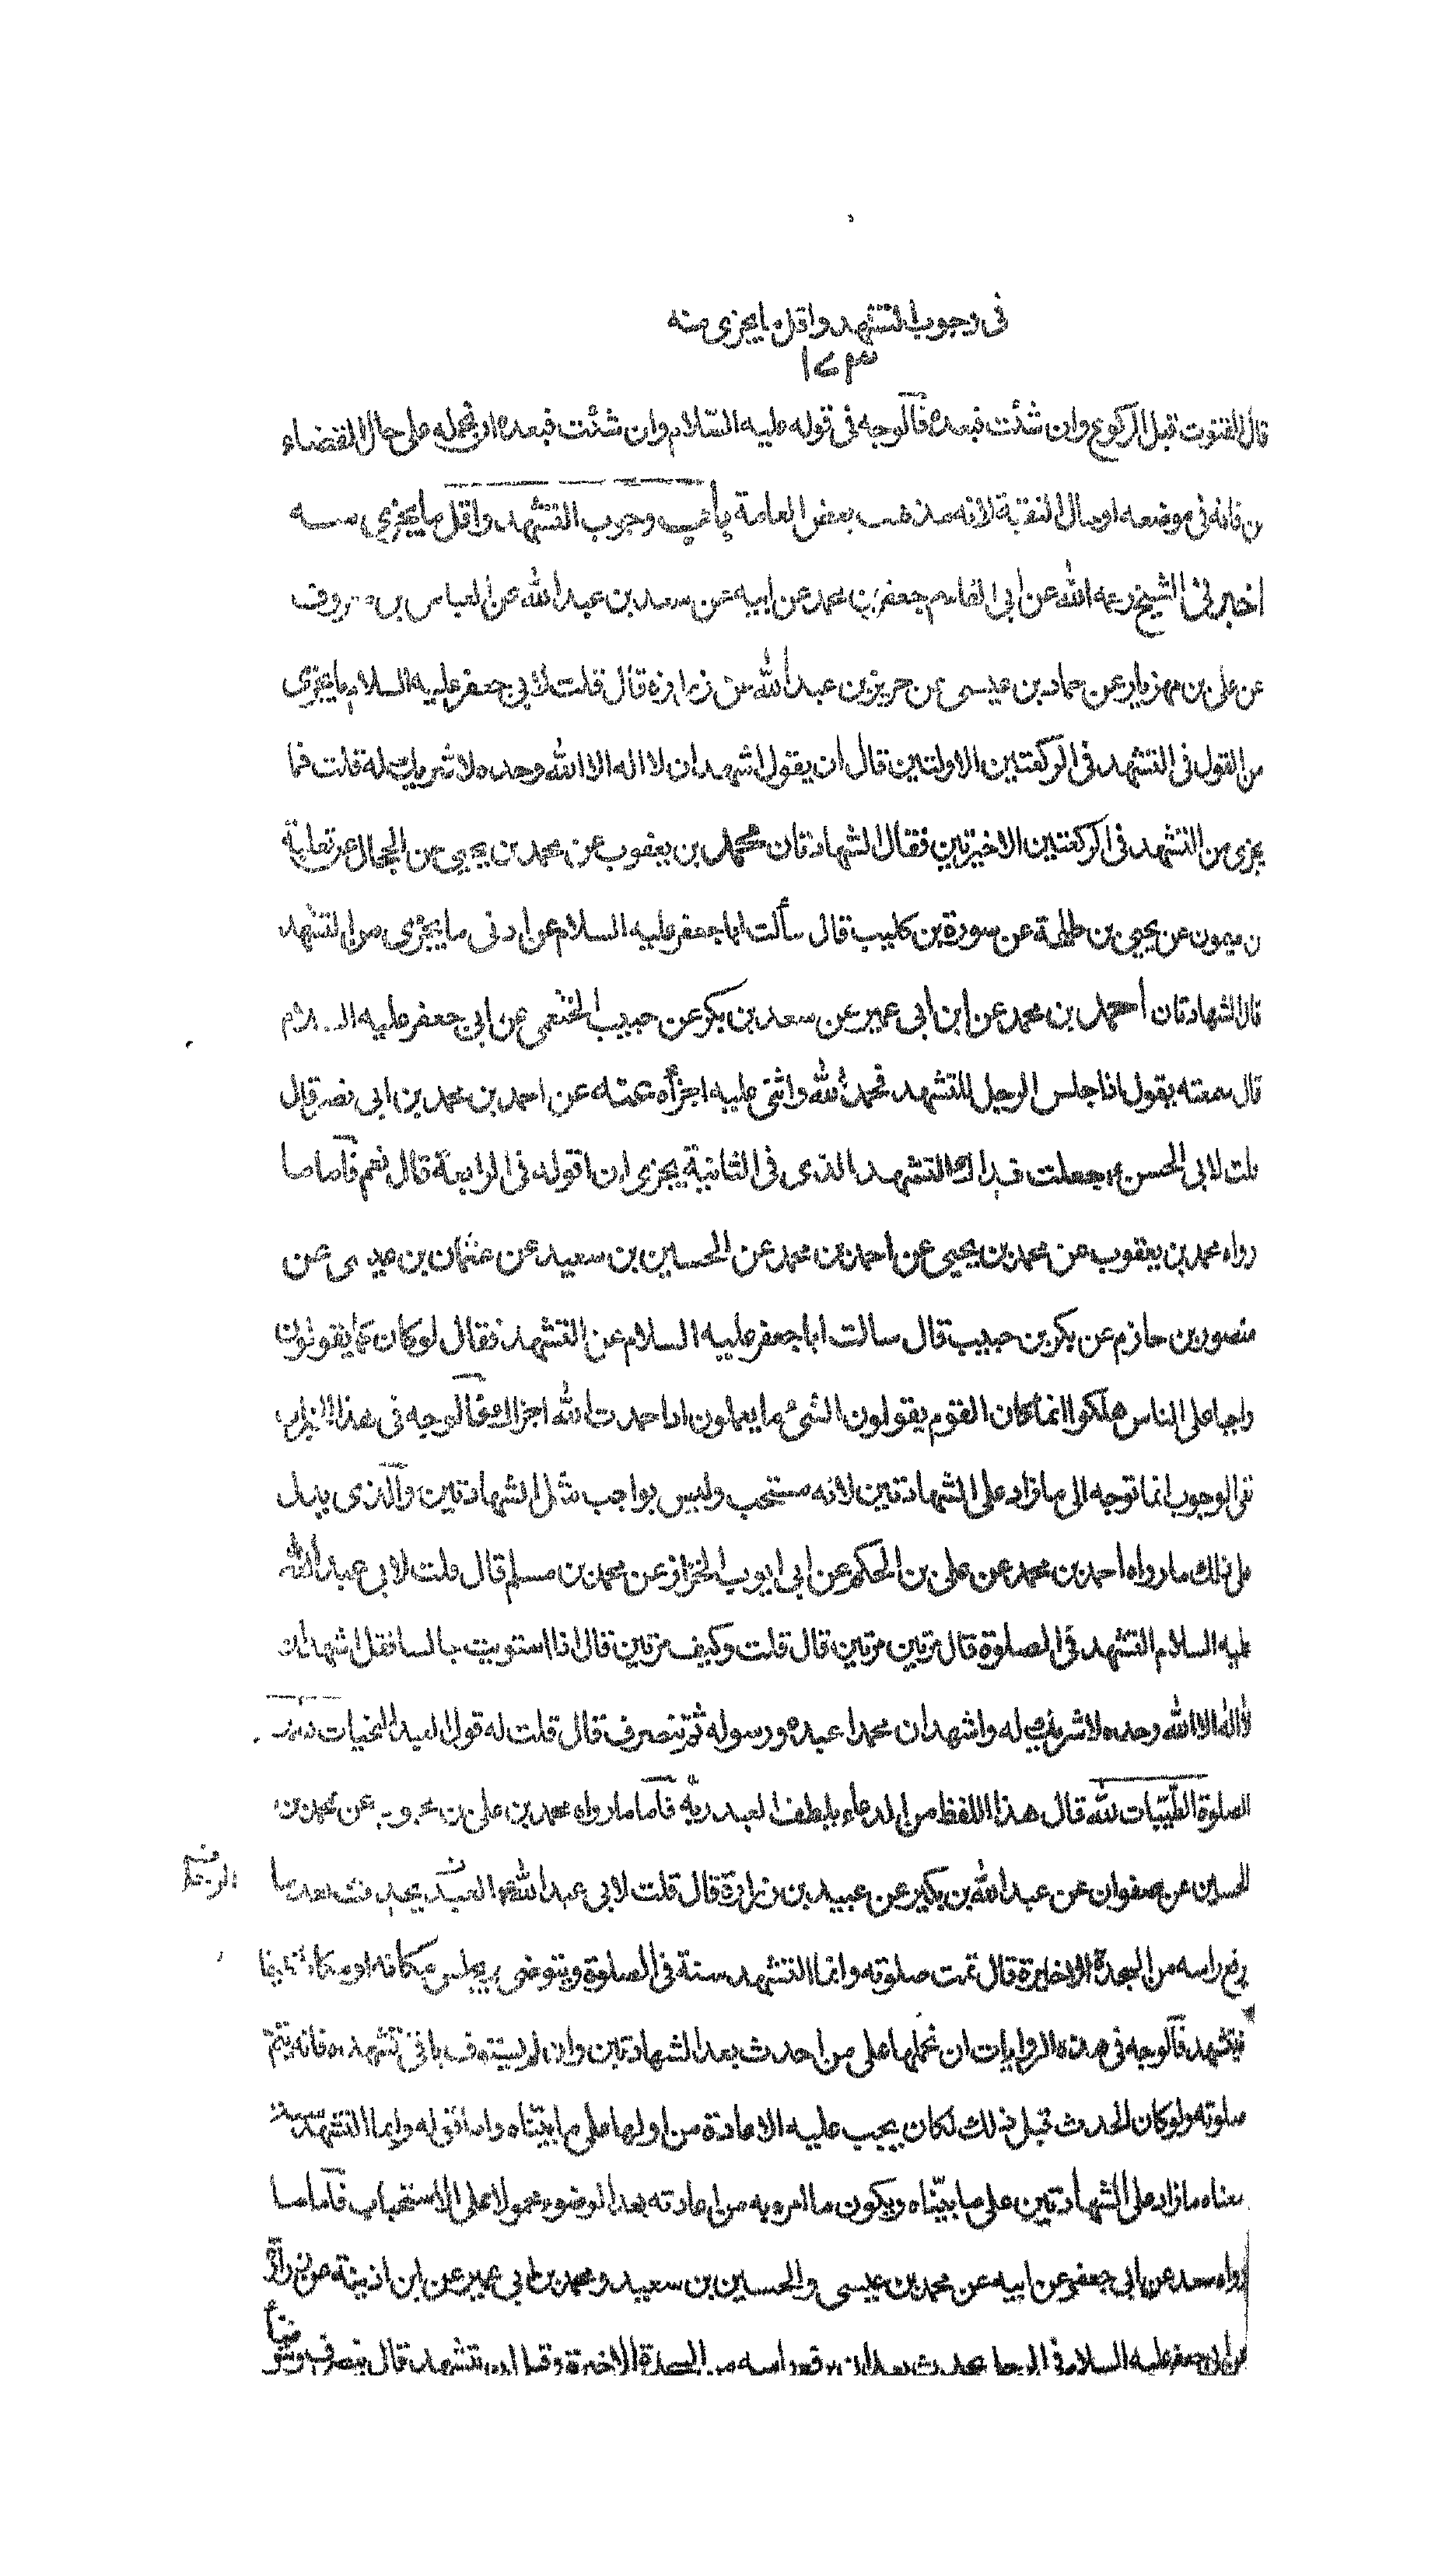 فى وجوب التشهد واقل ما يجزى منه
١٧٣
قال القنوت قبل الركوع وان شئت فبعده فالوجه فى قوله عليه السلام وان شئت فبعده ان نحمله على حال القضاء
ن فاته فى موضعه او حال التقية لانه مذهب بعض العامة باب وجوب التشهد واقل ما يجزى منه
اخبرنى الشيخ رحمه الله عن ابى القاسم جعفر بن محمد عن ابيه عن سعد بن عبد الله عن العباس بن معروف
عن على بن مهزيار عن حماد بن عيسى عن حريز بن عبد الله عن زرارة قال قلت لابى جعفر عليه السلام ما يجزى
من القول فى التشهد فى الركعتين الاولتين قال ان يقول اشهد ان لا اله الا الله وحده لا شريك له قلت فما
يجزى من التشهد فى الركعتين الاخيرتين فقال الشهادتان محمد بن يعقوب عن محمد بن يحيى عن الحجال عن ثعلبة
ن ميمون عن يحيى بن طلحة عن سورة بن كليب قال سألت ابا جعفر عليه السلام عن ادنى ما يجزى من التشهد
قال الشهادتان احمد بن محمد عن ابن ابى عمير عن سعد بن بكر عن حبيب الخثعمى عن ابى جعفر عليه السلام
قال سمعته يقول اذا جلس الرجل للتشهد فحمد الله واثنى عليه اجزأه عنه عن احمد بن محمد بن ابى نصر قال
قلت لابى الحسن ع جعلت فداك التشهد الذى فى الثانية يجزى ان اقوله فى الرابعة قال نعم فاما ما
رواه محمد بن يعقوب عن محمد بن يحيى عن احمد بن محمد عن الحسين بن سعيد عن عثمان بن عيسى عن
منصور بن حازم عن بكر بن حبيب قال سالت ابا جعفر عليه السلام عن التشهد فقال لو كان كما يقولون
واجبا على الناس هلكوا انما كان القوم يقولون الشئ ما يعلمون اذا حمدت الله اجزاك فالوجه فى هذا الخبر ان
نفى الوجوب انما توجه الى ما زاد على الشهادتين لانه مستحب وليس بواجب مثل الشهادتين والذى يدل
على ذلك ما رواه احمد بن محمد عن على بن الحكم عن ابى ايوب الخزاز عن محمد بن مسلم قال قلت لابى عبد الله
عليه السلام التشهد فى الصلوة قال مرتين مرتين قال قلت وكيف مرتين قال اذا استويت جالسا فقل اشهد ان
لا اله الا الله وحده لا شريك له واشهد ان محمدا عبده ورسوله ثم تنصرف قال قلت له قول العبد التحيات لله
الصلوة الطيبات لله قال هذا اللفظ من الدعاء يلطف العبد ربه فاما ما رواه محمد بن على بن محبوب عن محمد بن
الحسين عن صفوان عن عبد الله بن بكير عن عبيد بن زرارة قال قلت لابى عبد الله ع العبد يحدث بعد ما
يرفع راسه من السجدة الاخيرة قال تمت صلوته وانما التشهد سنة فى الصلوة ويتوضى ويجلس مكانه او مكانا نظيفا
فيتشهد فالوجه فى هذه الروايات ان نحملها على من احدث بعد الشهادتين وان لم يستوف باقى تشهده فانه يتم
صلوته ولو كان الحدث قبل ذلك لكان يجب عليه الاعادة من اولها على ما بيناه واما قوله وانما التشهد سنة
معناه ما زاد على الشهادتين على ما بيناه ويكون ما امر به من اعادته بعد الوضوء محمولا على الاستحباب فاما ما
رواه سعد عن ابى جعفر عن ابيه عن محمد بن عيسى والحسين بن سعيد ومحمد بن ابى عمير عن ابن اذينة عن زرارة
عن ابى جعفر عليه السلام فى الرجل يحدث بعد ان يرفع راسه من السجدة الاخيرة وقبل ان يتشهد قال ينصرف ويتوضأ